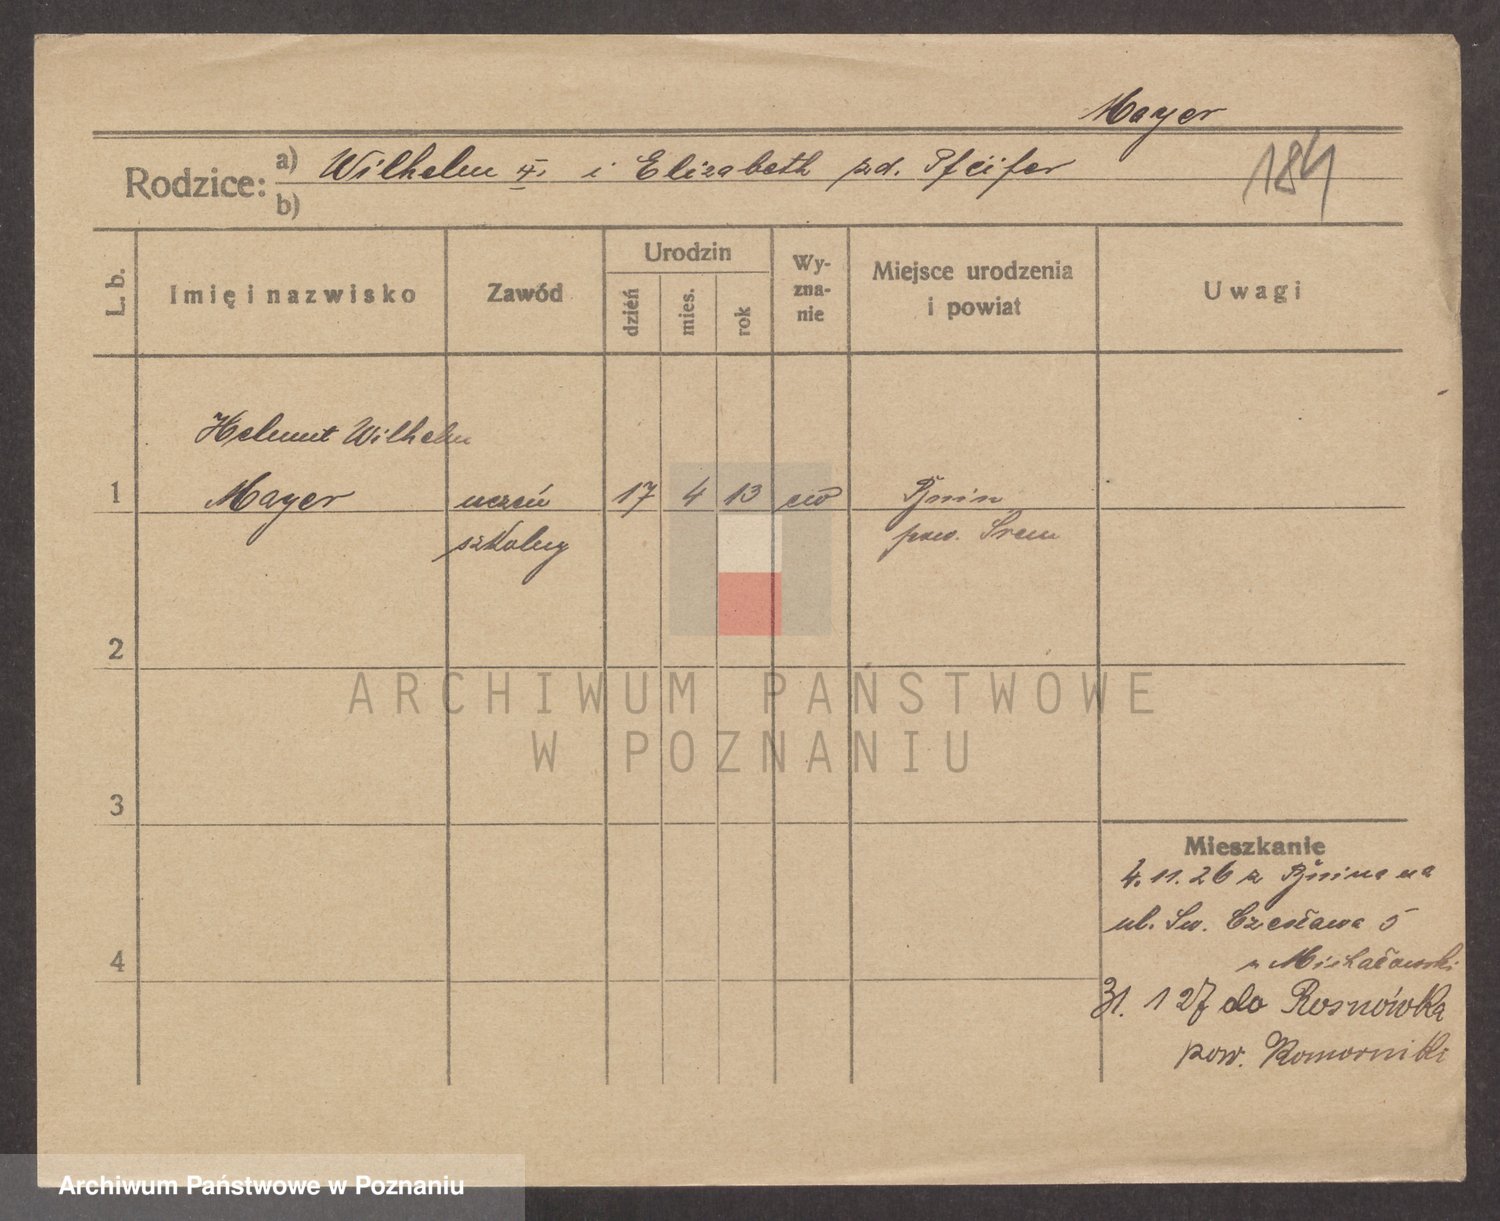 Mayer
Rodzice: a) Wilhelm i Elizabeth zd. Pfeifer
184
b)
L. b.
Imię i nazwisko
Zawód
Urodzin
dzień
mies.
rok
Wy-
zna-
nie
Miejsce urodzenia
i powiat
Uwagi
Helmut Wilhelm
1 Mayer uczeń 17 4 13 ew Bnin
szkolny pow. Śrem
2
ARCHIWUM PAŃSTWOWE
W POZNANIU
3
Mieszkanie
4. 11. 26 z Bnina na
ul. Św. Czesława 5
4
u Michałowski
31. 1 27 do Rosnówka
pow. Komorniki
Archiwum Państwowe w Poznaniu